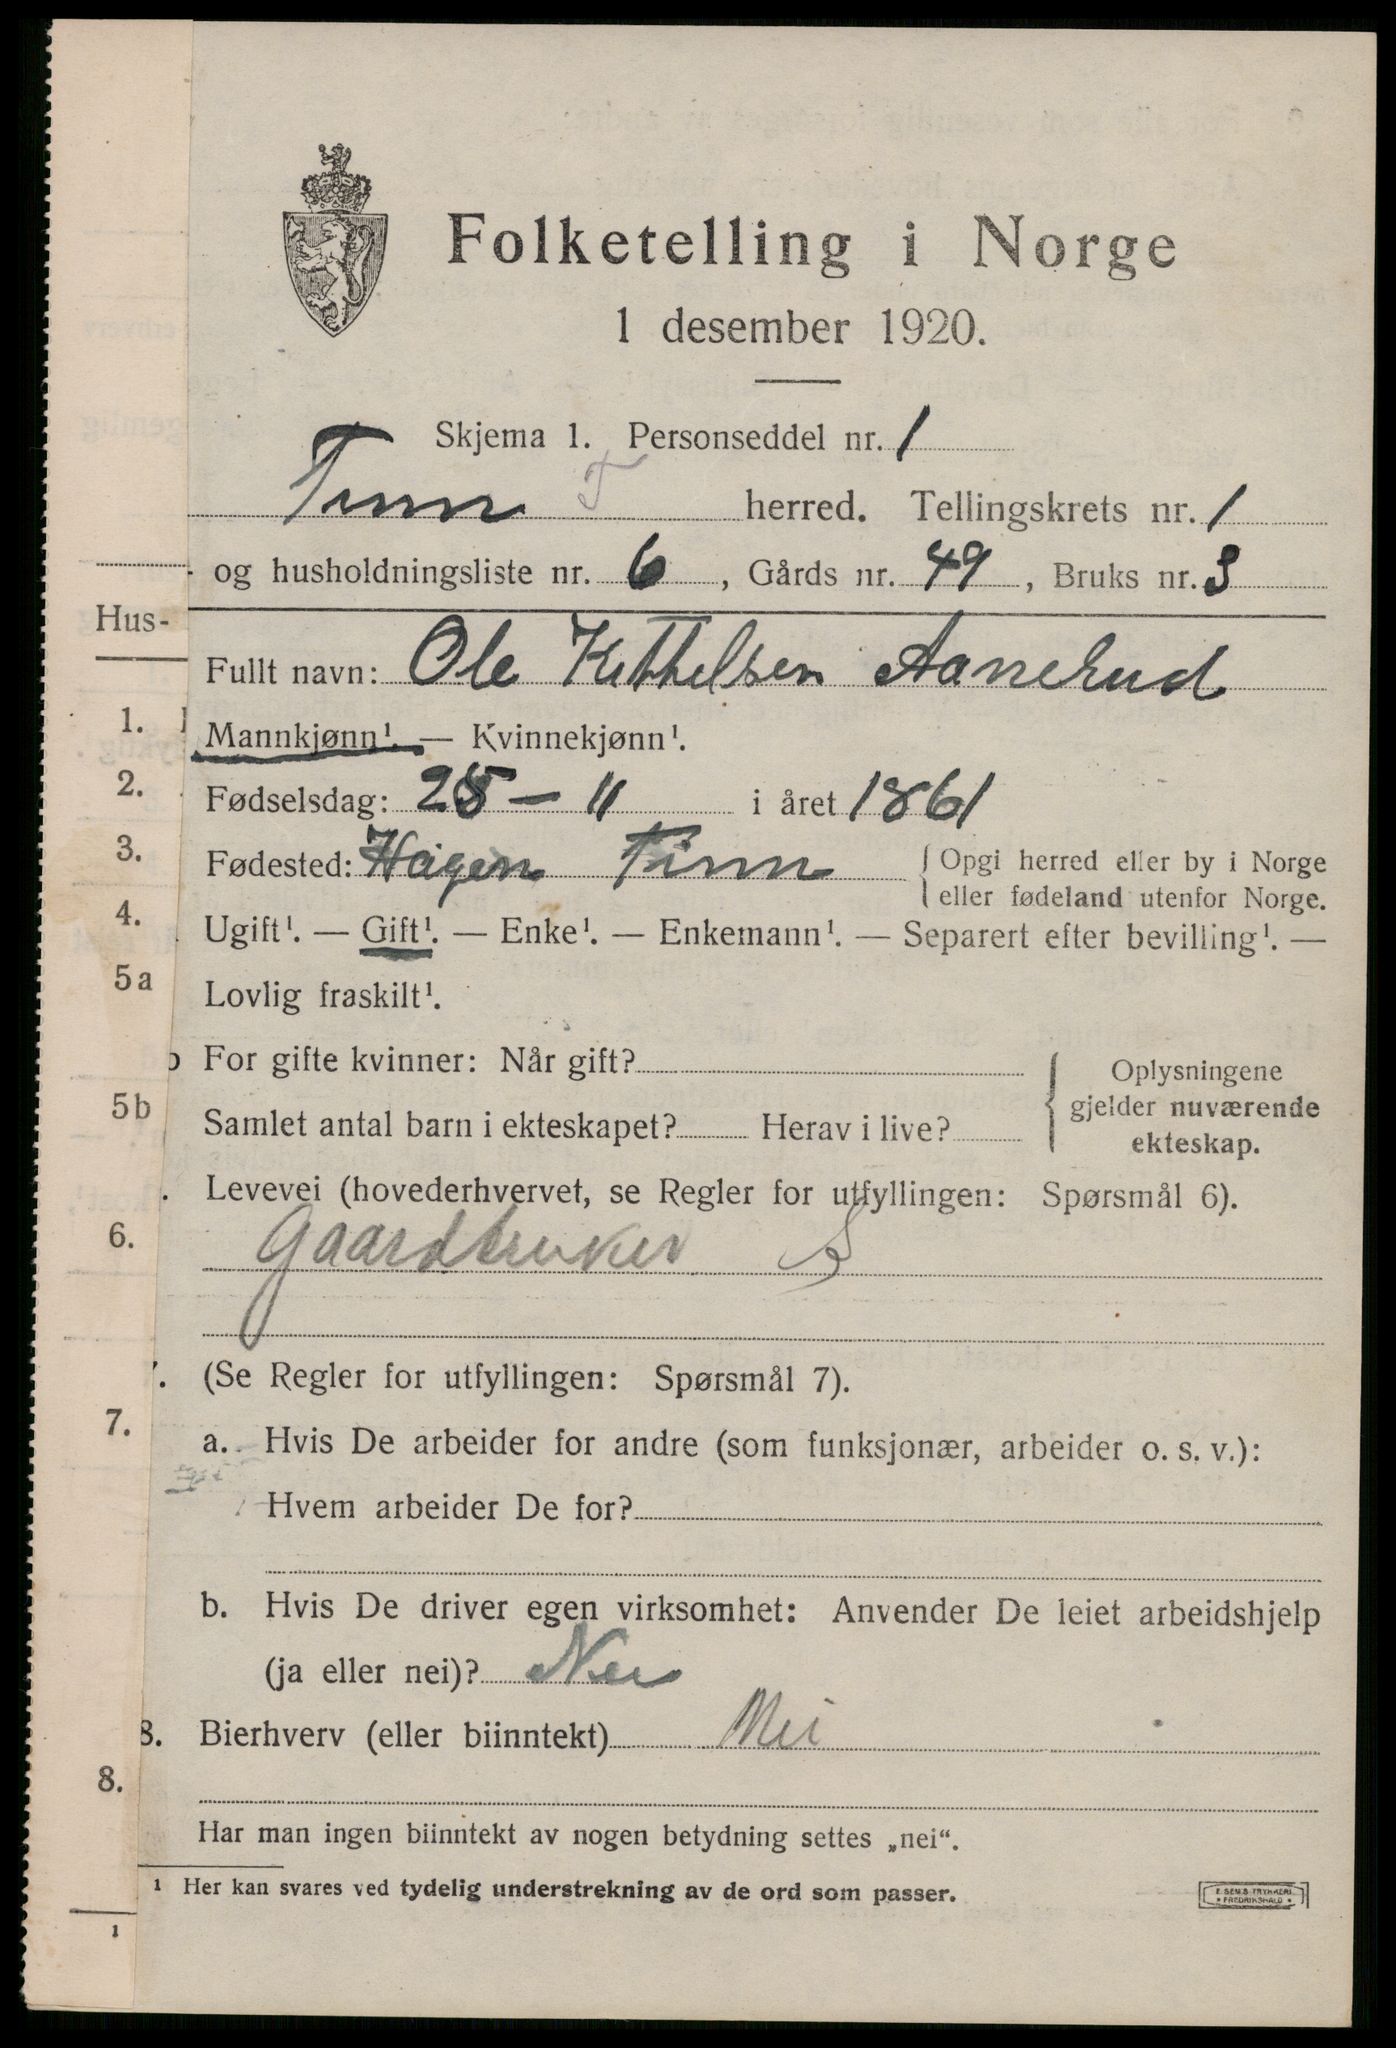 Folketelling i Norge
1 desember 1920.
Skjema 1. Personseddel nr. 1
Tinn T herred. Tellingskrets nr. 1
og husholdningsliste nr. 6, Gårds nr. 49, Bruks nr. 3
Hus-
Fullt navn: Ole Kittelsen Aanerud
1.
Mannkjønn¹. — Kvinnekjønn¹.
2.
Fødselsdag: 25 - 11 i året 1861
3.
Fødested: Hagen Tinn { Opgi herred eller by i Norge
eller fødeland utenfor Norge.
4.
Ugift¹. — Gift¹. — Enke¹. — Enkemann¹. — Separert efter bevilling¹. —
5a
Lovlig fraskilt¹.
b For gifte kvinner: Når gift?
5b
Samlet antal barn i ekteskapet? Herav i live?
{ Oplysningene
gjelder nuværende
ekteskap.
. Levevei (hovederhvervet, se Regler for utfyllingen: Spørsmål 6).
6.
Gaardbruker S
7. (Se Regler for utfyllingen: Spørsmål 7).
7.
a. Hvis De arbeider for andre (som funksjonær, arbeider o. s. v.):
Hvem arbeider De for?
b. Hvis De driver egen virksomhet: Anvender De leiet arbeidshjelp
(ja eller nei)? Nei
8. Bierhverv (eller biinntekt) Nei
8.
Har man ingen biinntekt av nogen betydning settes „nei“.
¹ Her kan svares ved tydelig understrekning av de ord som passer.
E. SEM.S TRYKKERI
FREDRIKSHALD
1